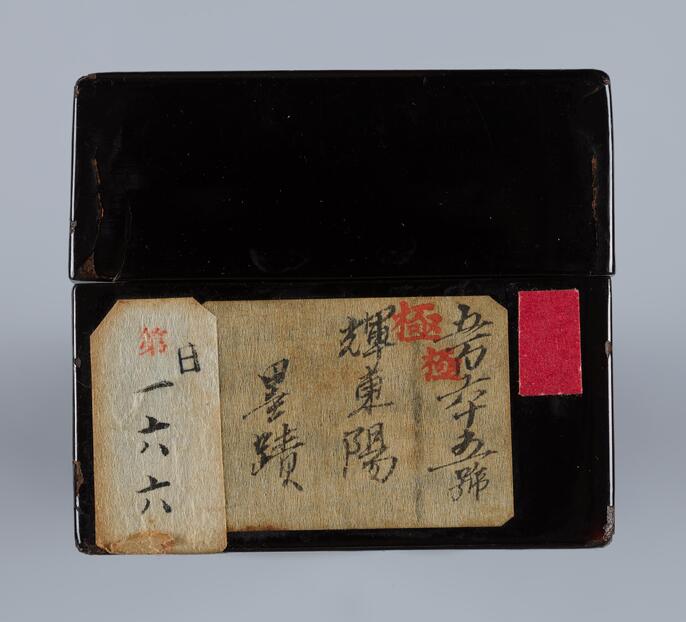 五百六十五號
極
極
輝東陽
墨蹟
第
日
一六六